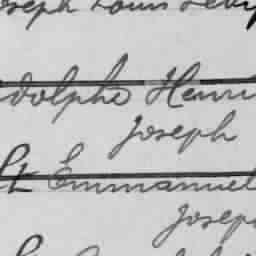 oseph Louis Levy
dolphe Henri
Joseph
Et Emmanuel
Josep